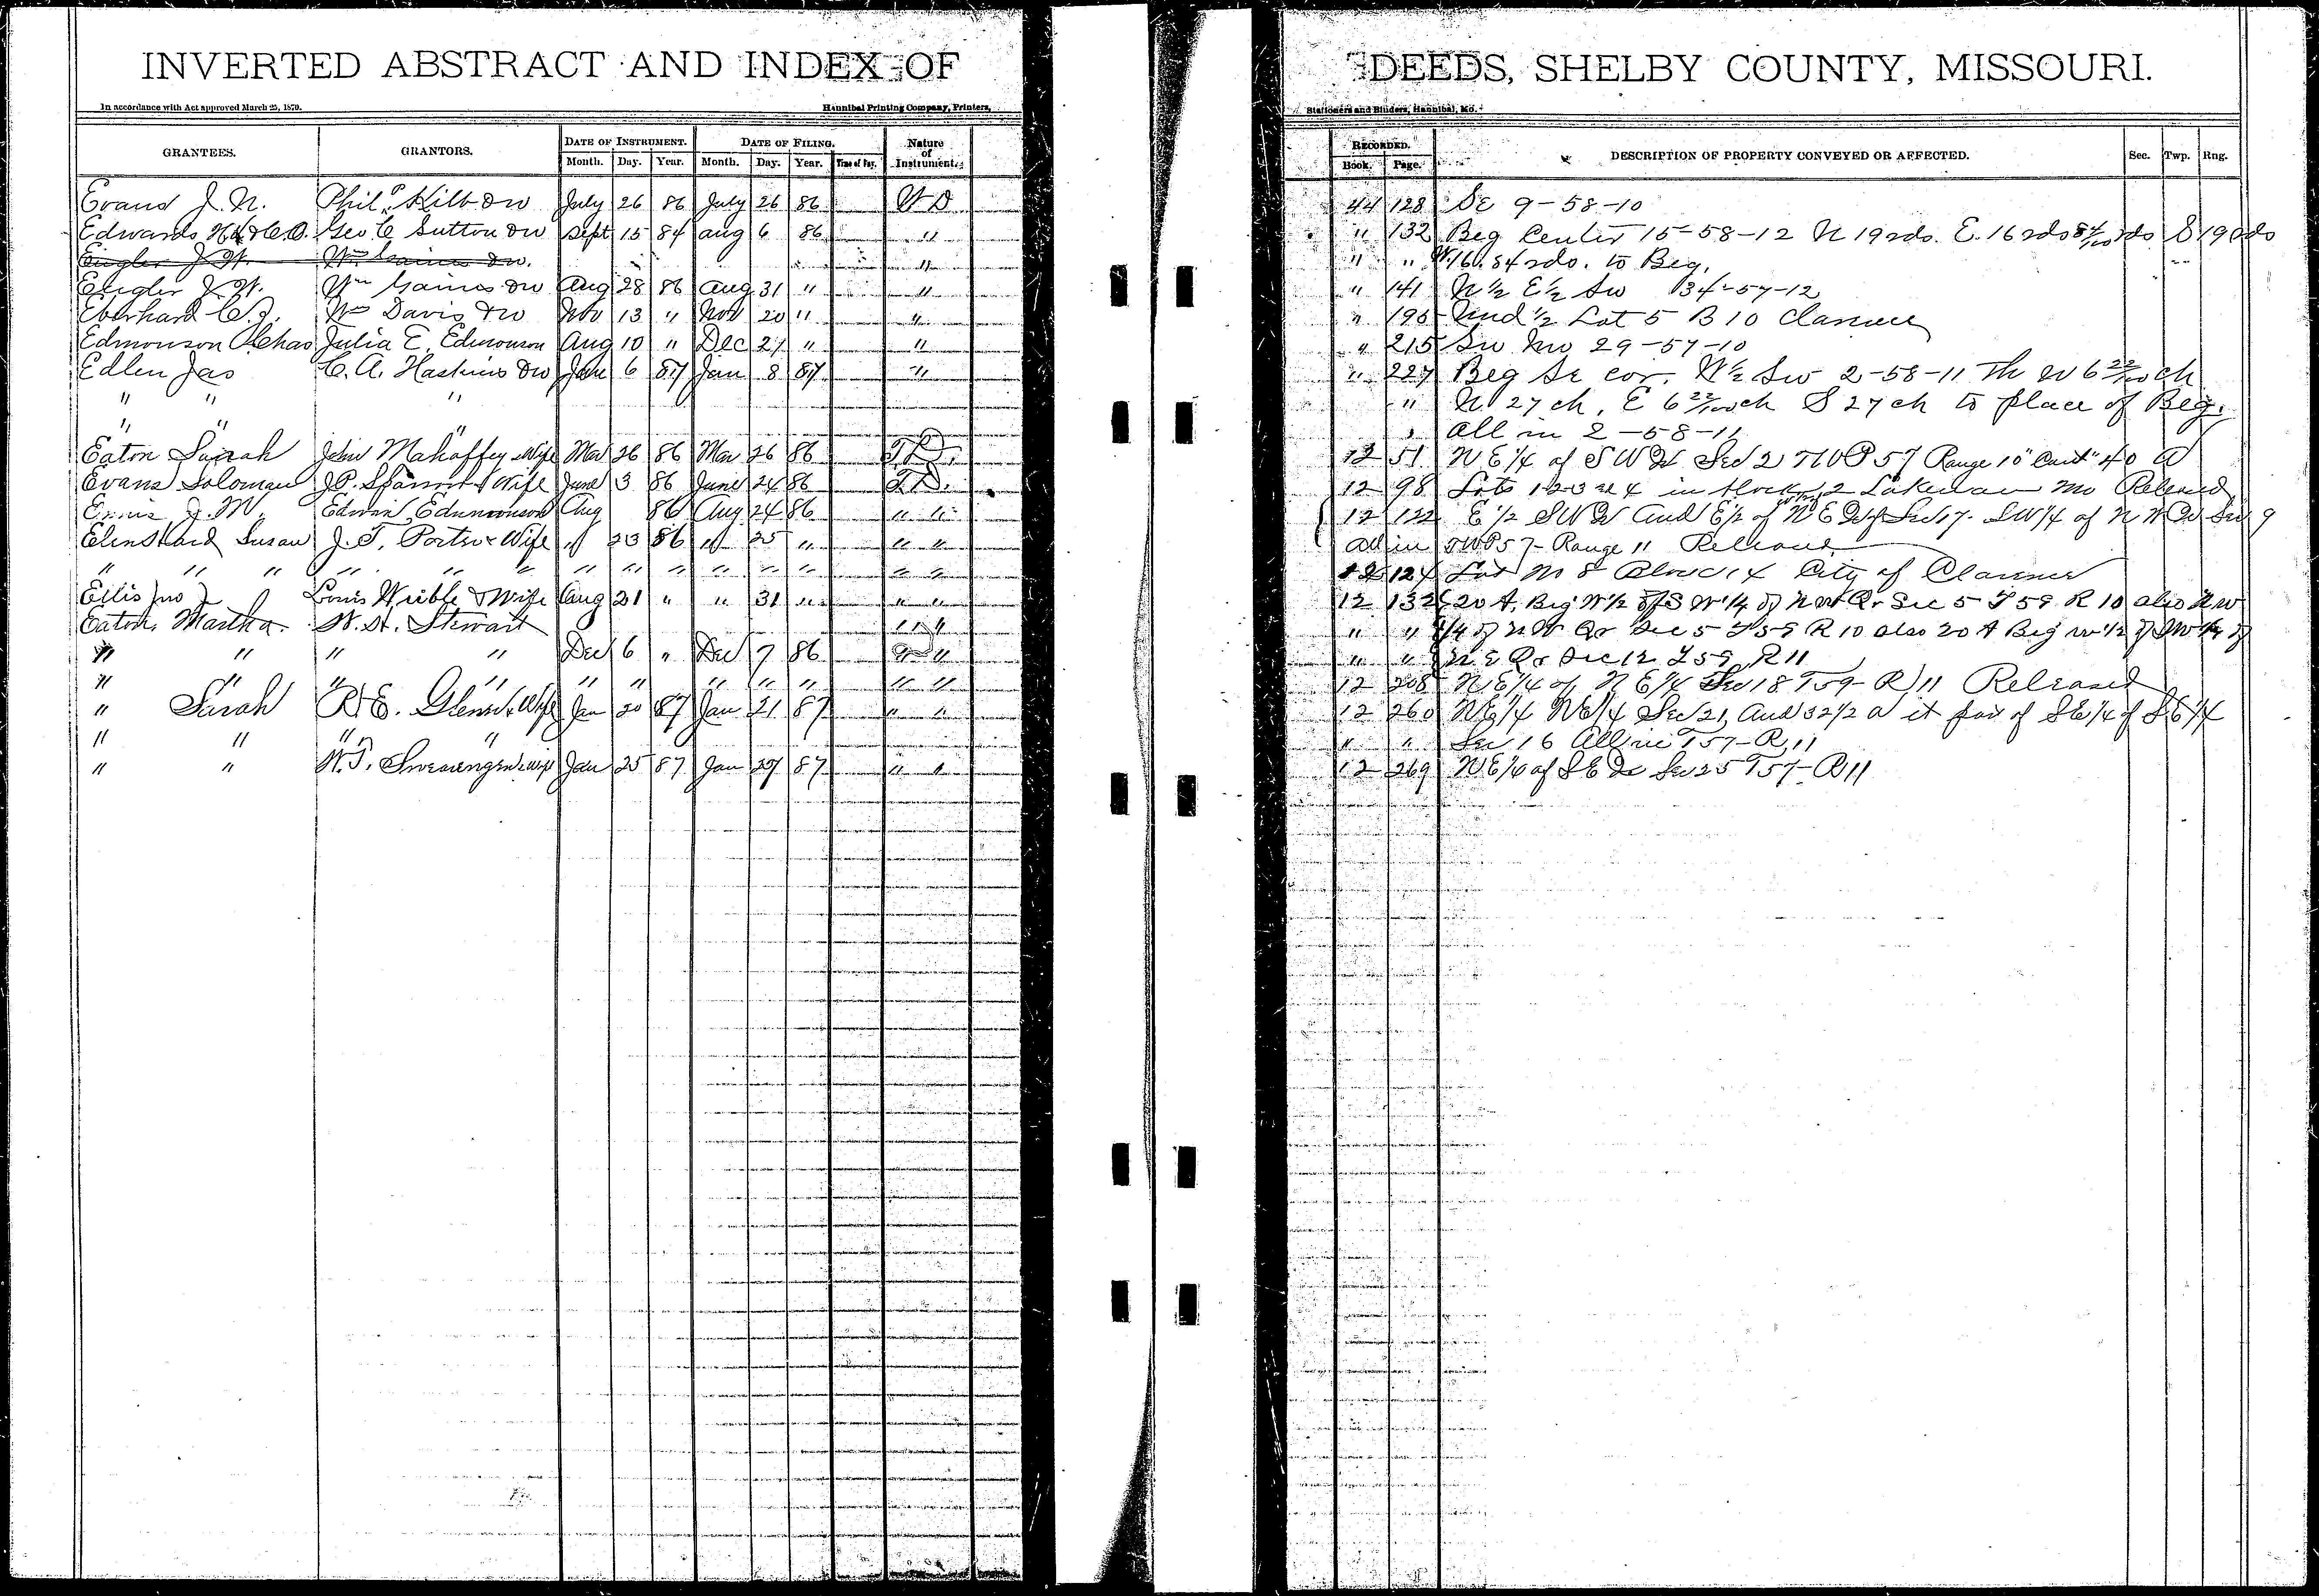 INVERTED ABSTRACT AND INDEX OF DEEDS, SHELBY COUNTY, MISSOURI.
In accordance with Act approved March 25, 1879. Hannibal Printing Company, Printers, Stationers and Binders, Hannibal, Mo.
GRANTEES. GRANTORS. DATE OF INSTRUMENT. Month. Day. Year. DATE OF FILING. Month. Day. Year. Time of Day. Nature of Instrument. RECORDED. Book. Page. DESCRIPTION OF PROPERTY CONVEYED OR AFFECTED. Sec. Twp. Rng.
J. N. Phil July 26 86 July 26 86 W D 44 128 Se 9-58-10
Edwards Geo C Sutton Sept 15 84 Aug 6 86 " " 132 Beg Center 15-58-12 N 19 rds. E. 16 rds S 19 rds
" " " W 16. 84 rds. to Beg.
J. W. Wm Gaines Aug 28 86 Aug 31 " " " 141 N 1/2 E 1/2 Sw 34-57-12
Eberhard C. J. Wm Davis Nov 13 " Nov 20 " " " 195 Und 1/2 Lot 5 B 10 Clarence
Edmonson Chas Julia E. Edmonson Aug 10 " Dec 21 " " " 215 Sw Nw 29-57-10
Edlen Jas C. A. Haskins 6 87 Jan 8 87 " " 227 Beg Se cor. W 1/2 Sw 2-58-11 Th W 6 22/100 ch
" " " " N 27 ch, E 6 22/100 ch S 27 ch to place of Beg.
" " " " All in 2-58-11
Eaton Sarah John Mahaffey Wife Mar 26 86 Mar 26 86 12 51 N E 1/4 of S W Sec 2 TWP 57 Range 10 40 A
Evans Soloman J. P. Wife June 3 86 June 24 86 12 98 Lots 1 2 3 4 in Block 2 Lakenan Mo Released
J. M. Edwin Edmonson Aug 86 Aug 24 86 " " 12 122 E 1/2 S W And E 1/2 of N E of Sec 17. S W 1/4 of N W 9
Susan J. T. Porter & Wife " 23 86 " 25 " " " All in TWP 57- Range 11 Released
" " " " " " " " " " " " " " 12 124 Lot No 8 Block 14 City of Clarence
Ellis Jno Louis & Wife Aug 31 " " 31 " " " 12 132 20 A. Beg W 1/2 of S W 1/4 of N W Qr Sec 5 T 59 R 10 also N W
Eaton, Martha. Stewart " " " " 1/4 of N W Qr Sec 5 T 59 R 10 also 20 A Beg W 1/2 of
" " " " Dec 6 " Dec 7 86 " " " N E Qr Sec 12 T 59 R 11
" " " " " " " " " " " " 12 208 N E 1/4 of N E 1/4 Sec 18 T 59 R 11 Released
" Sarah Wife Jan 20 87 Jan 21 87 " " 12 260 N E 1/4 N E 1/4 Sec 21, And 32 1/2 a of S E 1/4 of S E 1/4
" " " " " " Sec 16 All in T 57-R 11
" " Jan 25 87 Jan 29 87 " " 12 269 N E 1/4 of S E Sec 25 T 57-R 11